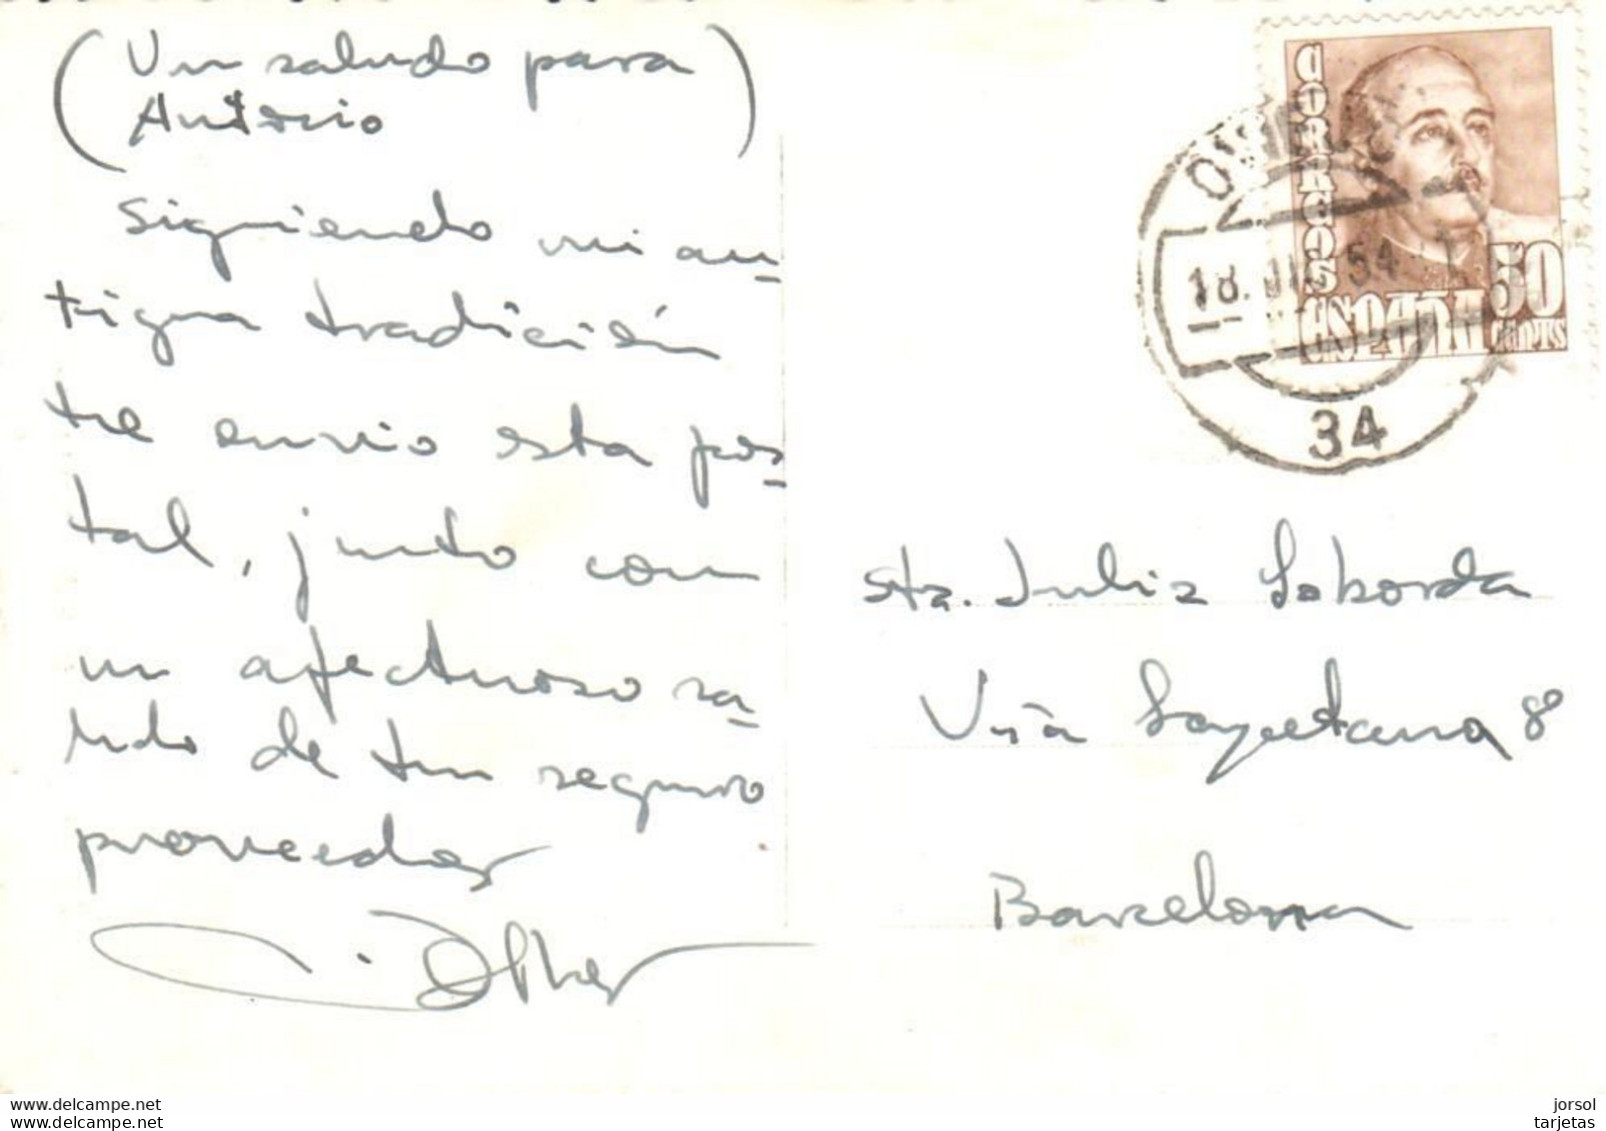 (Un saludo para
Antonio)
Siguiendo mi an-
tigua tradición
te envio esta pos-
tal, junto con
un afectuoso sa-
ludo de tu seguro
proveedor
CORREOS
ESPAÑA 50
CENTS
OVIEDO
18. 54
34
Sta. Julia Laborda
Via Layetana 8º
Barcelona
www.delcampe.net
www.delcampe.net
jorsol
tarjetas